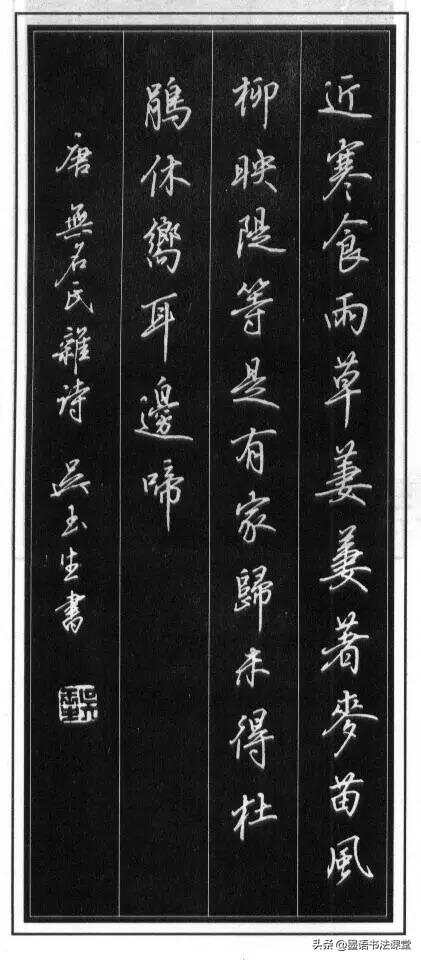 近寒食雨草萋萋著麥苗風
柳映隄等是有家歸未得杜
鵑休嚮耳邊啼
唐無名氏雜詩 吳玉生書
头条 @墨语书法课堂